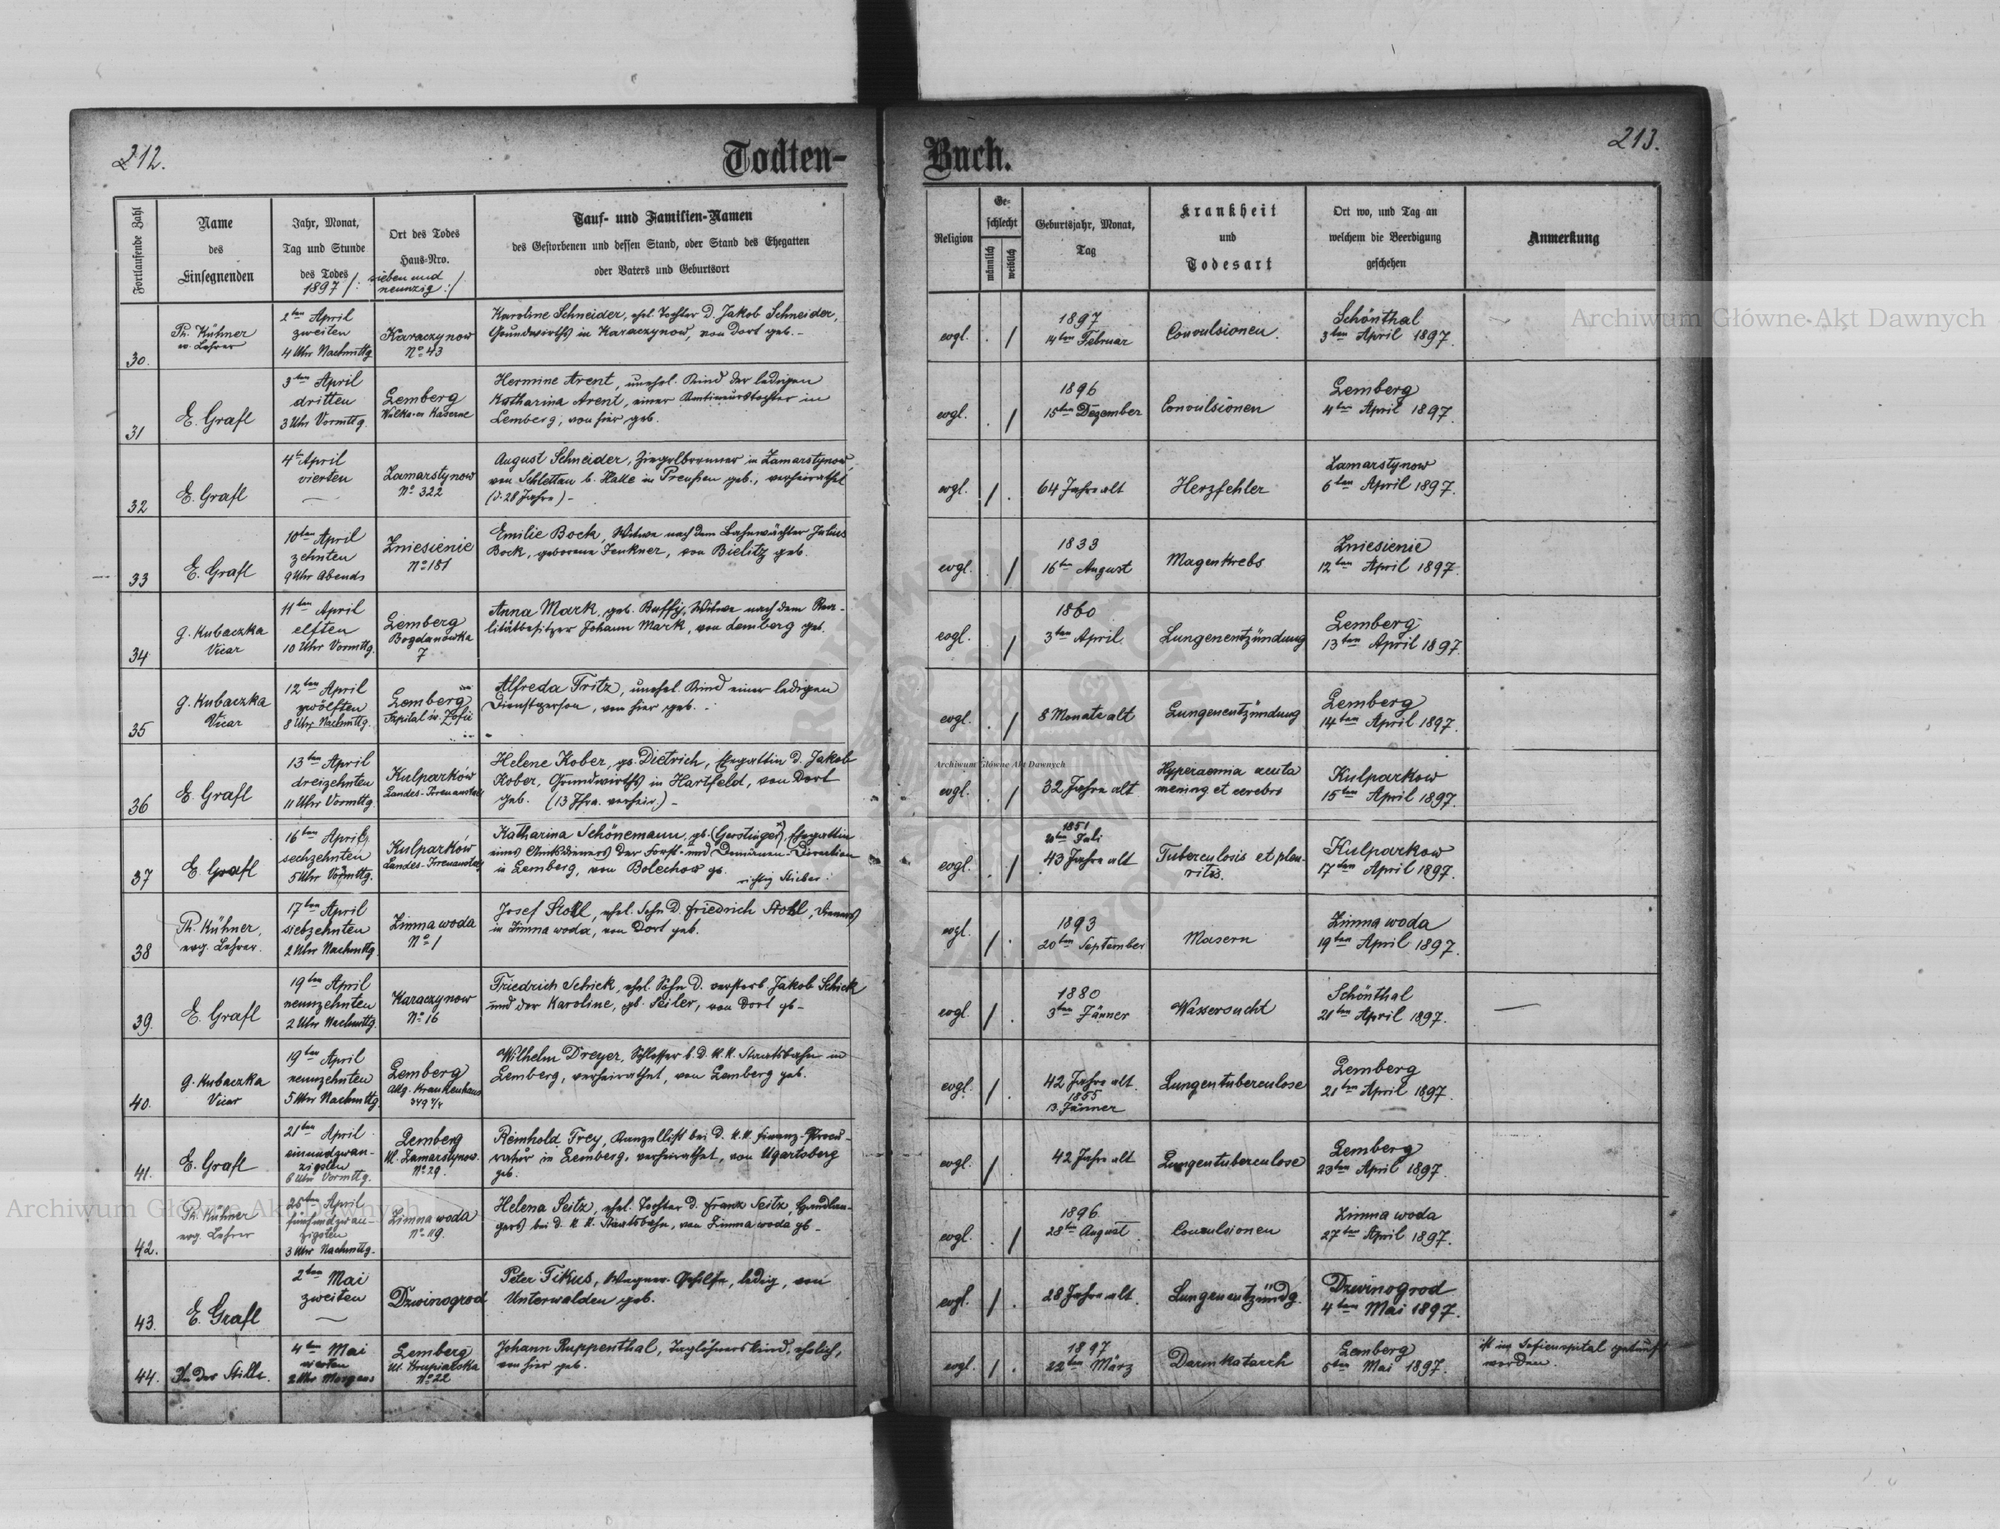 212.
Todten-
Buch.
213.
Fortlaufende Zahl
Name
des
Einsegnenden
Jahr, Monat,
Tag und Stunde
des Todes
1897 /: sieben und
neunzig :/
Ort des Todes
Haus-Nro.
Tauf- und Familien-Namen
des Gestorbenen und dessen Stand, oder Stand des Ehegatten
oder Vaters und Geburtsort
Religion
Ge-
schlecht
männlich
weiblich
Geburtsjahr, Monat,
Tag
Krankheit
und
Todesart
Ort wo, und Tag an
welchem die Beerdigung
geschehen
Anmerkung
30.
Ph. Kühner
ev. Lehrer
2ten April
zweiten
4 Uhr Nachmttg
Karaczynow
No 43
Karoline Schneider, ehel. Tochter d. Jakob Schneider,
Grundwirths in Karaczynow, von dort geb. -
evgl.
1897
14ten Februar
Convulsionen.
Schönthal
3ten April 1897.
31
E. Grafl
3ten April
dritten
3 Uhr Vormttg.
Lemberg
Kaserne
Hermine Arent, unehel. Kind der ledigen
Katharina Arent, einer
Lemberg, von hier geb.
evgl.
1896
15ten Dezember
Convulsionen
Lemberg
4ten April 1897.
32
E. Grafl
4t April
vierten
Zamarstynow
No 322
August Schneider, Ziegelbrenner in Zamarstynow,
von Schlettau b. Halle in Preußen geb., verheirathet
(d. 28 Jahre) -
evgl.
64 Jahre alt
Herzfehler
Zamarstynow
6ten April 1897.
33
E. Grafl
10ten April
zehnten
9 Uhr Abends
Zniesienie
No 181
Emilie Bock, Witwe nach dem Bahnwächter Julius
Bock, geborene Jenkner, von Bielitz geb.
evgl.
1833
16ten August
Magenkrebs
Zniesienie
12ten April 1897.
34
G. Kubaczka
Vicar
11ten April
elften
10 Uhr Vormttg.
Lemberg
Bogdanówka
7
Anna Mark, geb. Buffy, Witwe nach dem Rea-
litätbesitzer Johann Mark, von Lemberg geb.
evgl.
1860
3ten April
Lungenentzündung
Lemberg
13ten April 1897.
35
G. Kubaczka
Vicar
12ten April
zwölften
8 Uhr Nachmttg.
Lemberg
Spital św. Zofii
Alfreda Fritz, unehel. Kind einer ledigen
Dienstperson, von hier geb. -
evgl.
8 Monate alt
Lungenentzündung
Lemberg
14ten April 1897.
36
E. Grafl
13ten April
dreizehnten
11 Uhr Vormttg.
Kulparków
Landes-Irrenanstalt
Helene Kober, gb. Dietrich, Ehegattin d. Jakob
Kober, Grundwirths in Hartfeld, von dort
geb. (13 Jhre. verheir.) -
evgl.
32 Jahre alt
Hyperaemia acuta
mening et cerebri
Kulparkow
15ten April 1897.
37
E. Grafl
16ten April
sechzehnten
5 Uhr Vormttg.
Kulparków
Landes-Irrenanstalt
Katharina Schönemann, gb. (Gerstinger), Ehegattin
eines Amtsdieners der Forst- und Domänen-Direction
in Lemberg, von Bolechow gb.
richtig Stieber.
evgl.
1851
Juli
43 Jahre alt
Tuberculosis et pleu-
ritis.
Kulparkow
17ten April 1897.
38
Ph. Kühner,
evg. Lehrer.
17ten April
siebzehnten
2 Uhr Nachmttg.
Zimna woda
No 1
Josef Stohl, ehel. Sohn d. Friedrich Stohl, Dieners
in Zimna woda, von dort geb.
evgl.
1893
20ten September
Masern
Zimna woda
19ten April 1897.
39.
E. Grafl
19ten April
neunzehnten
2 Uhr Nachmttg.
Karaczynow
No 16
Friedrich Schick, ehel. Sohn d. verstorb. Jakob Schick
und der Karoline, gb. Seiler, von dort gb. -
evgl.
1880
3ten Jänner
Wassersucht
Schönthal
21ten April 1897.
40.
G. Kubaczka
Vicar
19ten April
neunzehnten
5 Uhr Nachmttg.
Lemberg
Allg. Krankenhaus
Wilhelm Dreyer, Schlosser b. d. k. k. Staatsbahn in
Lemberg, verheirathet, von Lemberg geb.
evgl.
42 Jahre alt
1855
13. Jänner
Lungentuberculose
Lemberg
21ten April 1897.
41.
E. Grafl
21ten April
einundzwan-
zigsten
6 Uhr Vormttg.
Lemberg
Ul. Zamarstynow.
No 29.
Reinhold Frey, Kanzellist bei d. k. k. Finanz-Procu-
ratur in Lemberg, verheirathet, von Ugartsberg
geb.
evgl.
42 Jahre alt
Lungentuberculose
Lemberg
23ten April 1897.
42.
Ph. Kühner
evg. Lehrer
25ten April
fünfundzwan-
zigsten
3 Uhr Nachmttg.
Zimna woda
No 119.
Helena Seitz, ehel. Tochter d. Franz Seitz, Handlan-
gers bei d. k. k. Staatsbahn, von Zimna woda gb. -
evgl.
1896
28ten August
Convulsionen
Zimna woda
27ten April 1897.
43.
E. Grafl
2ten Mai
zweiten
Dzwinogrod
Peter Tikus, Wagner-Gehilfe, ledig, von
Unterwalden geb.
evgl.
28 Jahre alt.
Lungenentzündg.
Dzwinogrod
4ten Mai 1897.
44.
In der Stille.
4ten Mai
vierten
2 Uhr Morgens
Lemberg
Ul. Krupiarska
No 22
Johann Ruppenthal, Taglöhnerskind, ehelich,
von hier geb.
evgl.
1897
22ten März
Darmkatarrh
Lemberg
5ten Mai 1897.
ist im Sofienspital getauft
worden.
Archiwum Główne Akt Dawnych
Archiwum Główne Akt Dawnych
Archiwum Główne Akt Dawnych